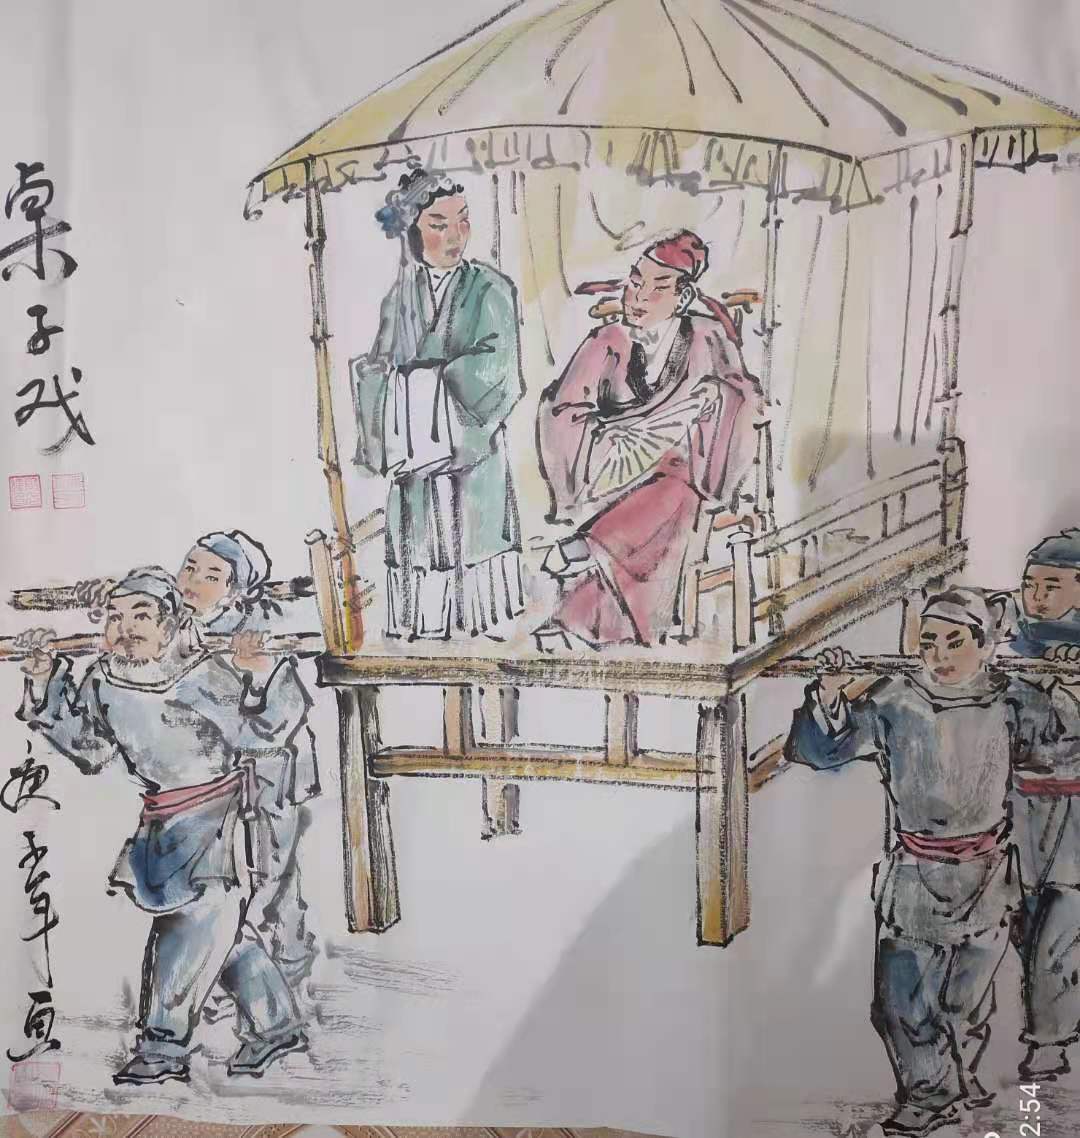 桌子戏
庚子年画
2:54